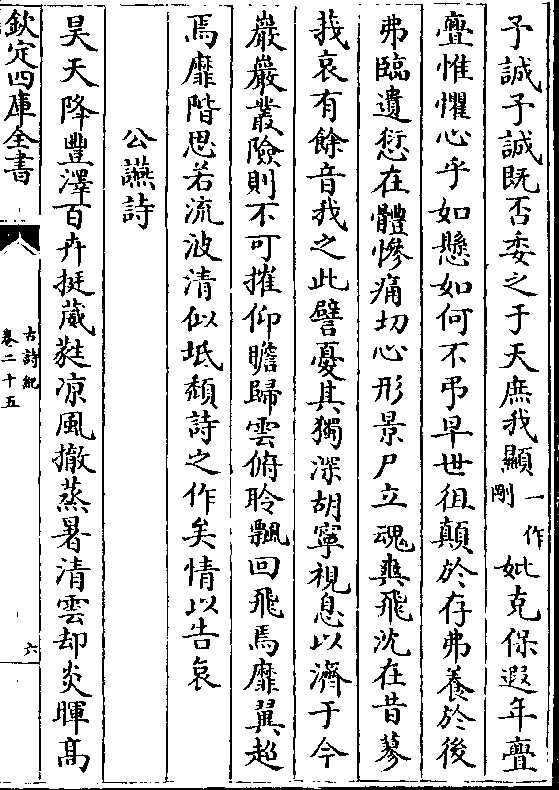 予誠予誠既否委之于天庶我顯一作剛妣克保遐年亹
亹惟懼心乎如懸如何不弔早世徂顛於存弗養於後
弗臨遺愆在體慘痛切心形景尸立魂爽飛沈在昔蓼
莪哀有餘音我之此譬憂其獨深胡寧視息以濟于今
巖巖叢險則不可摧仰瞻歸雲俯聆飄回飛焉靡翼超
焉靡階思若流波清似坻頽詩之作矣情以告哀
公讌詩
昊天降豐澤百卉挺葳蕤凉風撤蒸暑清雲却炎暉高
欽定四庫全書
古詩紀
卷二十五
六